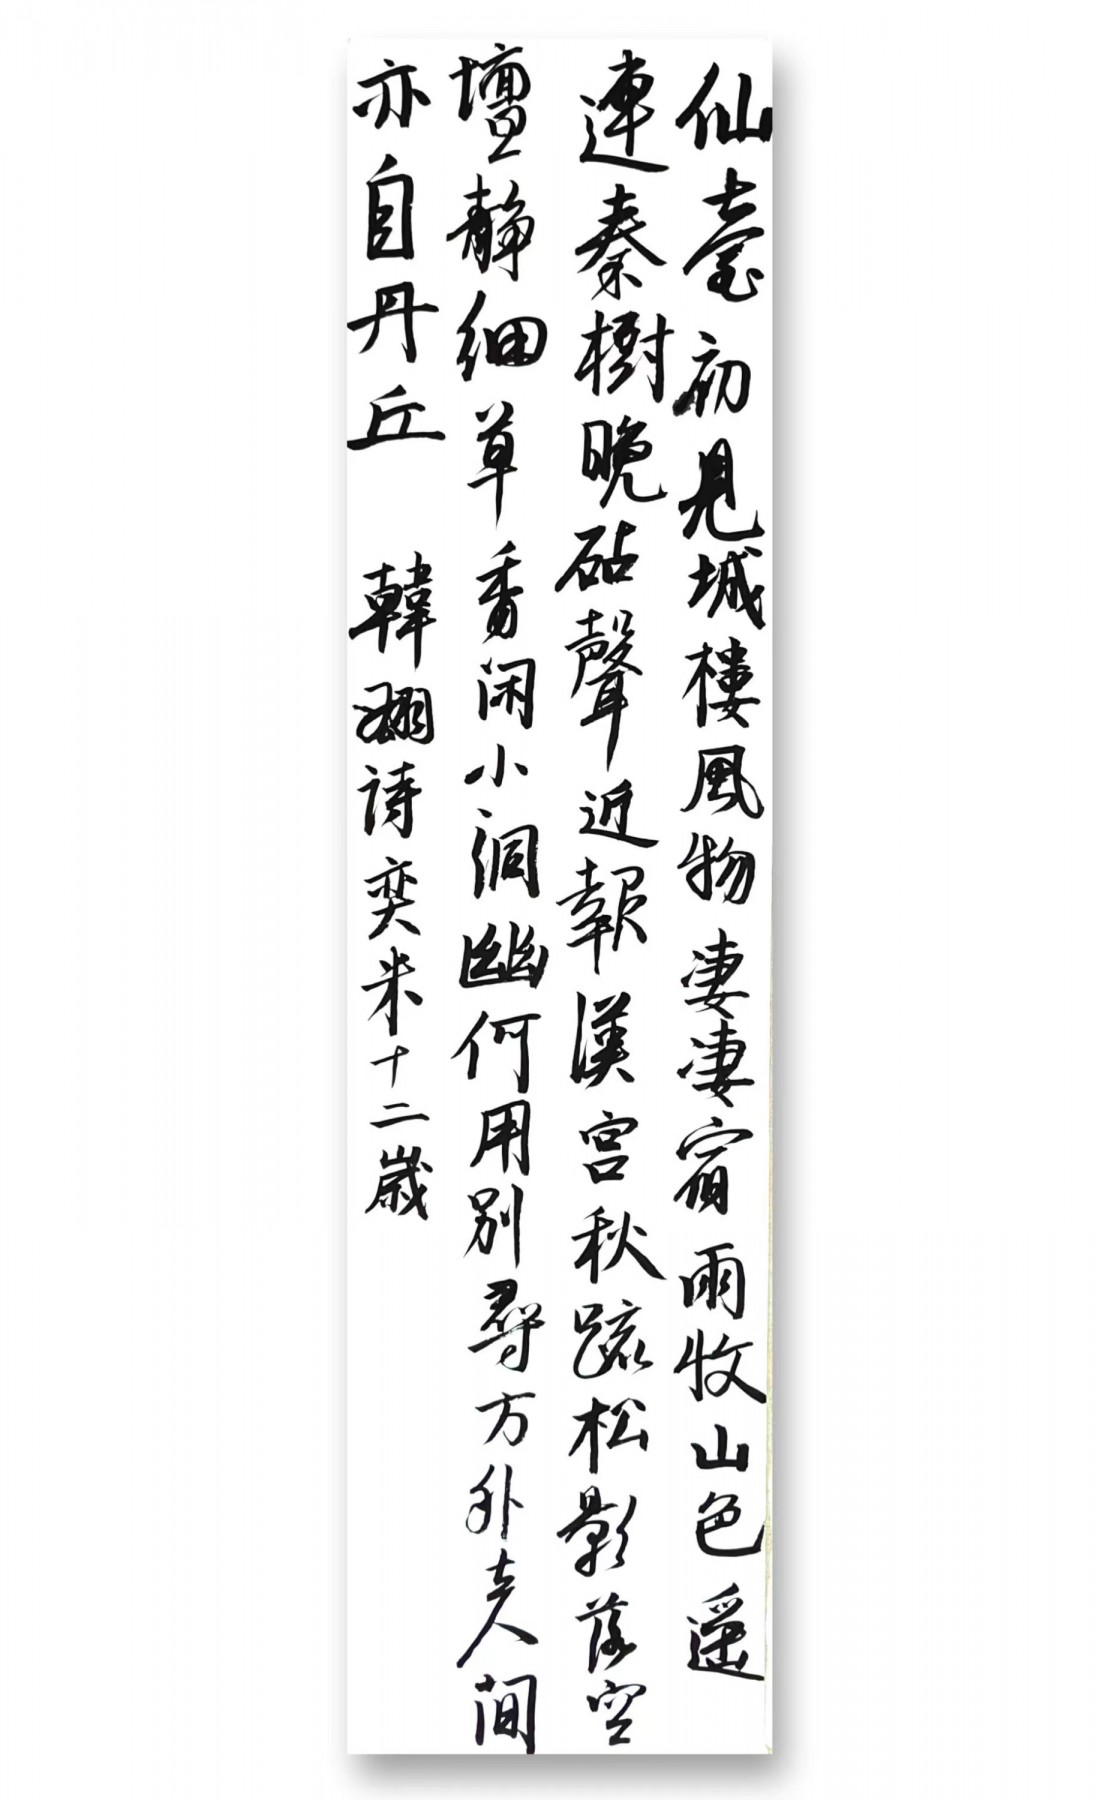 仙臺初見城樓風物凄凄宿雨收山色遥
連秦樹晚砧聲近報漢宫秋疏松影落空
壇静細草香闲小洞幽何用别尋方外去人间
亦自丹丘 韓翃詩奕米十二歲